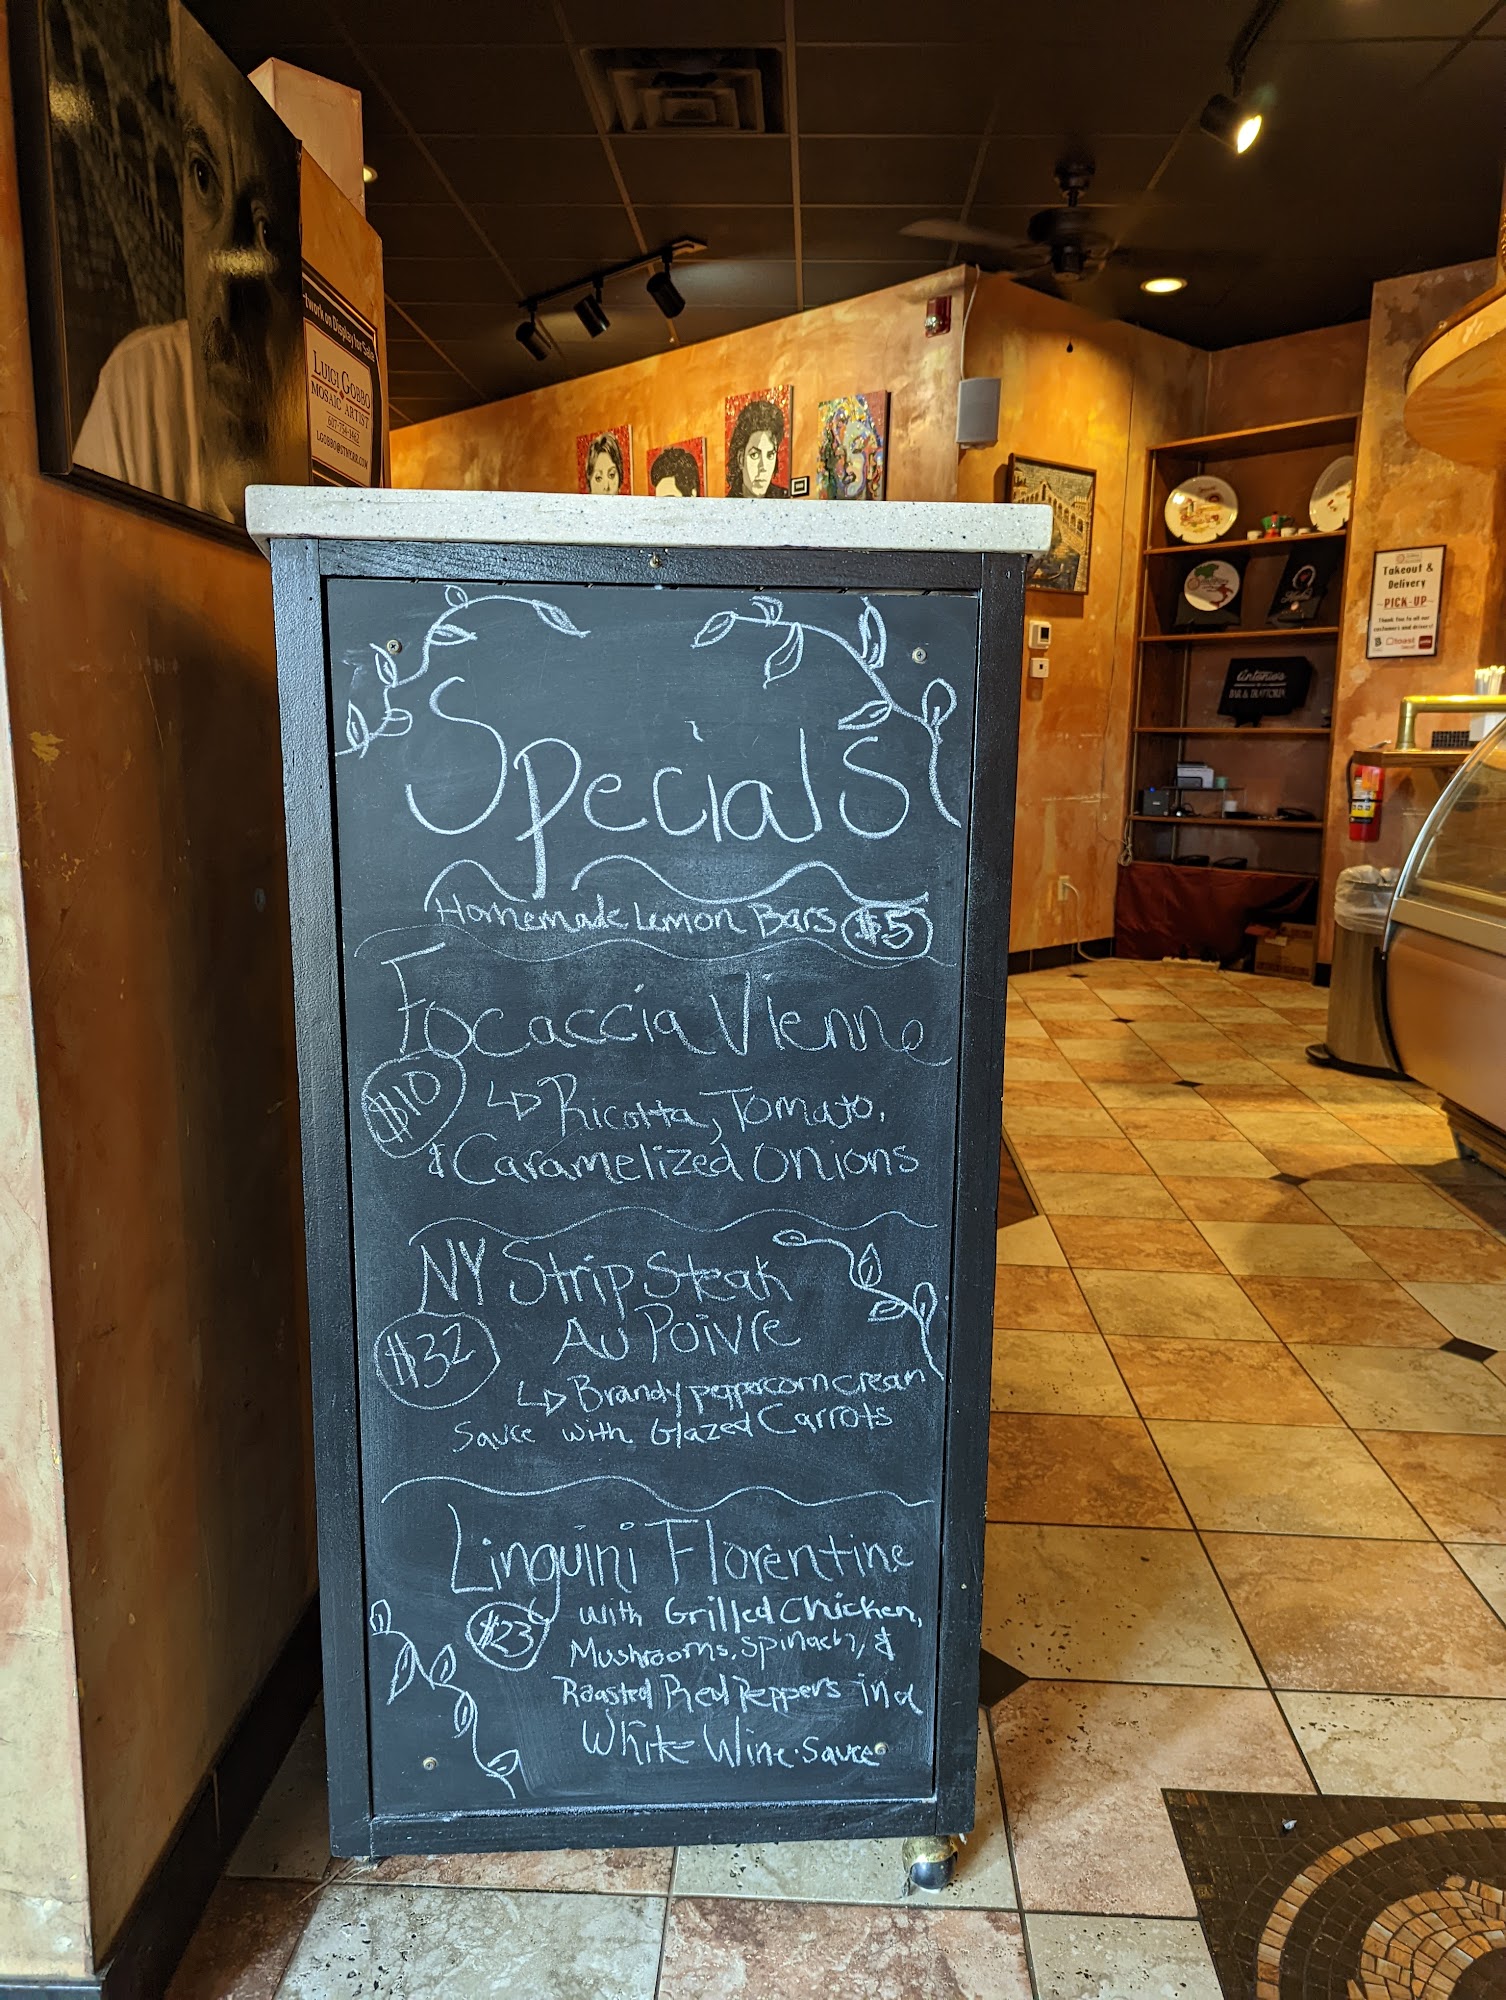 Artwork on Display for Sale
LUIGI GOBBO
MOSAIC ARTIST
607-754-1462
LGOBBO@STNY.RR.COM
Takeout &
Delivery
PICK-UP
Thank You to all our
customers and drivers!
toast
Antonio's
BAR & TRATTORIA
Specials
Homemade Lemon Bars $5
Focaccia Vienne
$10 ↳ Ricotta, Tomato,
& Caramelized Onions
NY Strip Steak
Au Poivre
$32
↳ Brandy peppercorn cream
Sauce with Glazed Carrots
Linguini Florentine
$23 with Grilled Chicken,
Mushrooms, Spinach, &
Roasted Red Peppers in a
White Wine Sauce